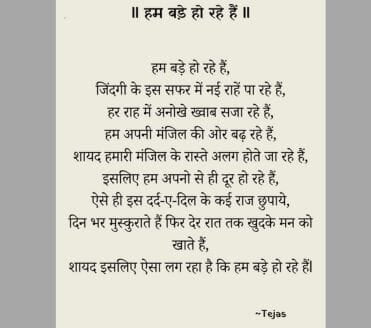 ॥ हम बड़े हो रहे हैं ॥
हम बड़े हो रहे हैं,
जिंदगी के इस सफर में नई राहें पा रहे हैं,
हर राह में अनोखे ख्वाब सजा रहे हैं,
हम अपनी मंजिल की ओर बढ़ रहे हैं,
शायद हमारी मंजिल के रास्ते अलग होते जा रहे हैं,
इसलिए हम अपनो से ही दूर हो रहे हैं,
ऐसे ही इस दर्द-ए-दिल के कई राज छुपाये,
दिन भर मुस्कुराते हैं फिर देर रात तक खुदके मन को
खाते हैं,
शायद इसलिए ऐसा लग रहा है कि हम बड़े हो रहे हैं।
~Tejas